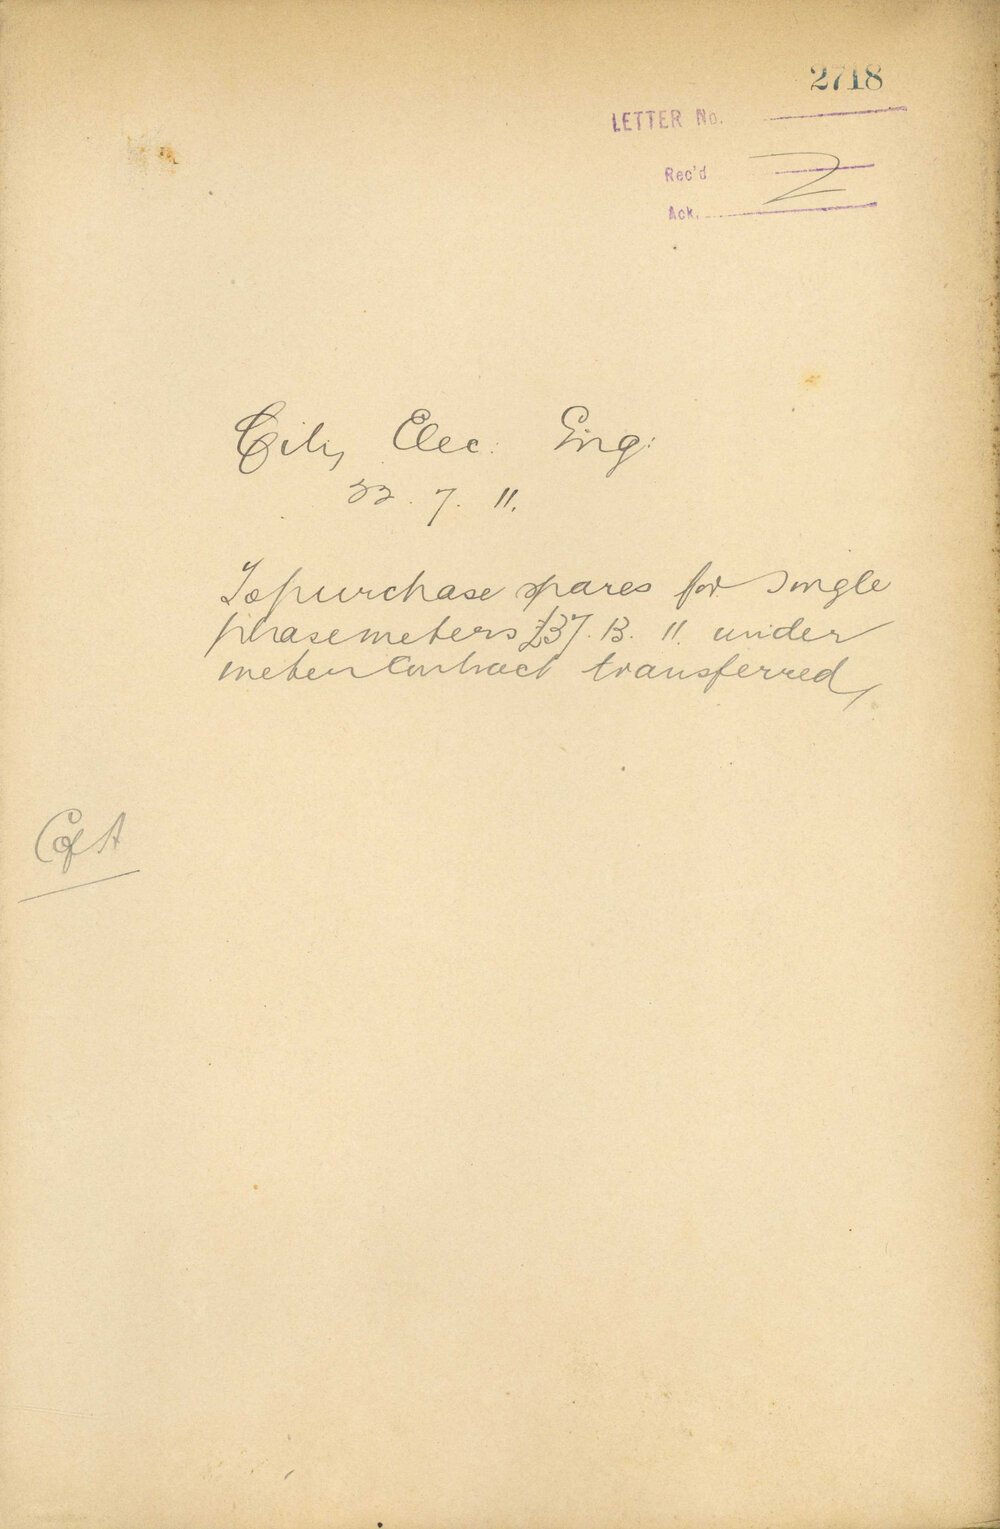 2718
LETTER No.
Rec'd
Ack.
City Elec. Eng:
22. 7. 11.
To purchase spares for single
phase meters £37. 13. 11. under
meter Contract transferred,
C of A